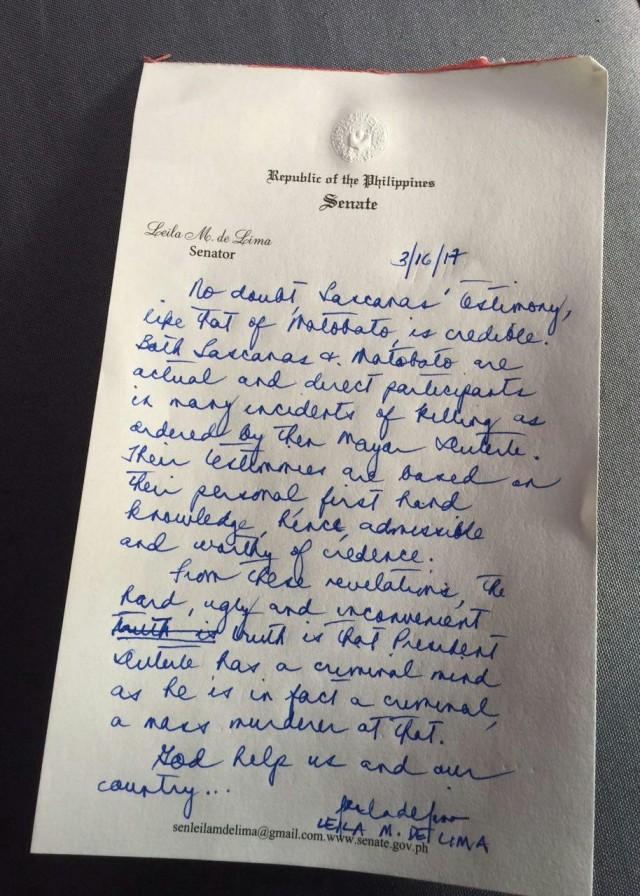 Republic of the Philippines
Senate
Leila M. de Lima
Senator
3/16/17
No doubt, Lascañas' testimony,
like that of Matobato, is credible.
Both Lascañas & Matobato are
actual and direct participants
in many incidents of killing as
ordered by then Mayor Duterte.
Their testimonies are based on
their personal first hand
knowledge, hence, admissible
and worthy of credence.
From these revelations, the
hard, ugly and inconvenient
truth is truth is that President
Duterte has a criminal mind
as he is in fact a criminal,
a mass murderer at that.
God help us and our
country...
LEILA M. DE LIMA
senleilamdelima@gmail.com.www.senate.gov.ph